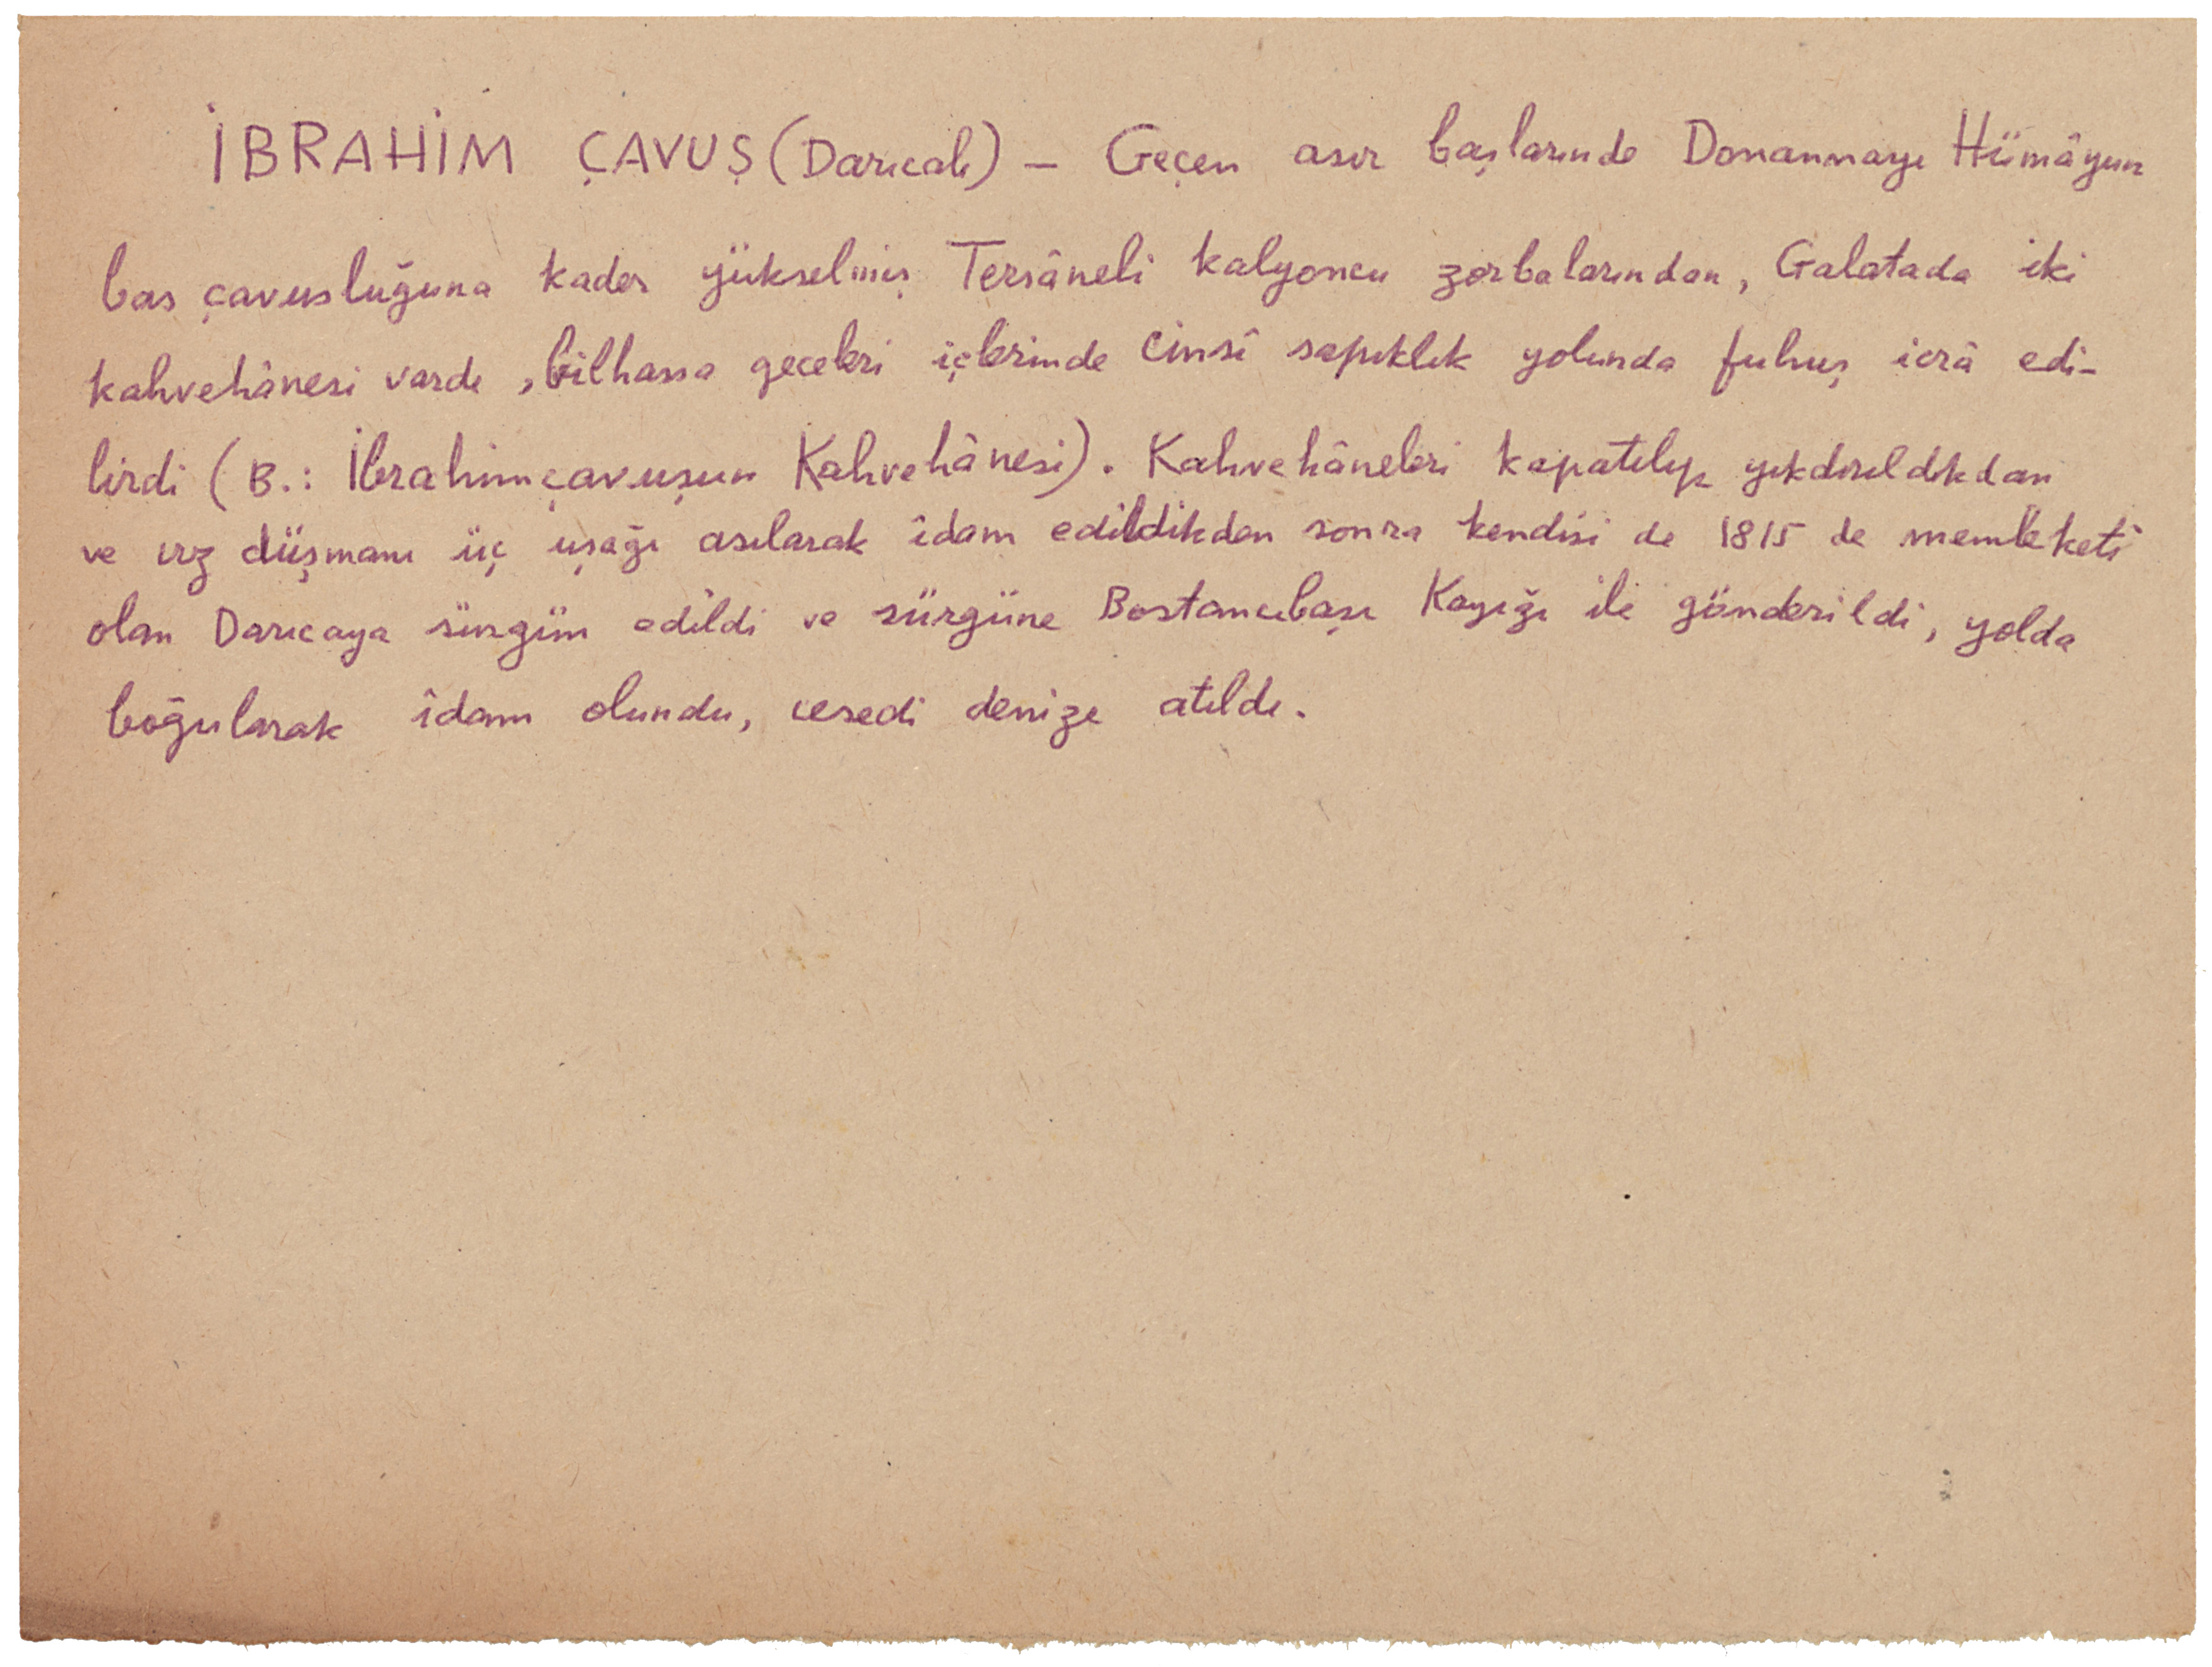 İBRAHİM ÇAVUŞ (Darıcalı) — Geçen asır başlarında Donanmayı Hümâyun
bas çavusluğuna kadar yükselmiş Tersâneli kalyoncu zorbalarından, Galatada iki
kahvehânesi vardı, bilhassa geceleri içlerinde cinsî sapıklık yolunda fuhuş icrâ edi-
lirdi (B.: İbrahimçavuşun Kahvehânesi). Kahvehâneleri kapatılıp yıkdırıldıkdan
ve ırz düşmanı üç uşağı asılarak îdam edildikden sonra kendisi de 1815 de memleketi
olan Darıcaya sürgün edildi ve sürgüne Bostancıbaşı Kayığı ile gönderildi, yolda
boğularak îdam olundu, cesedi denize atıldı.